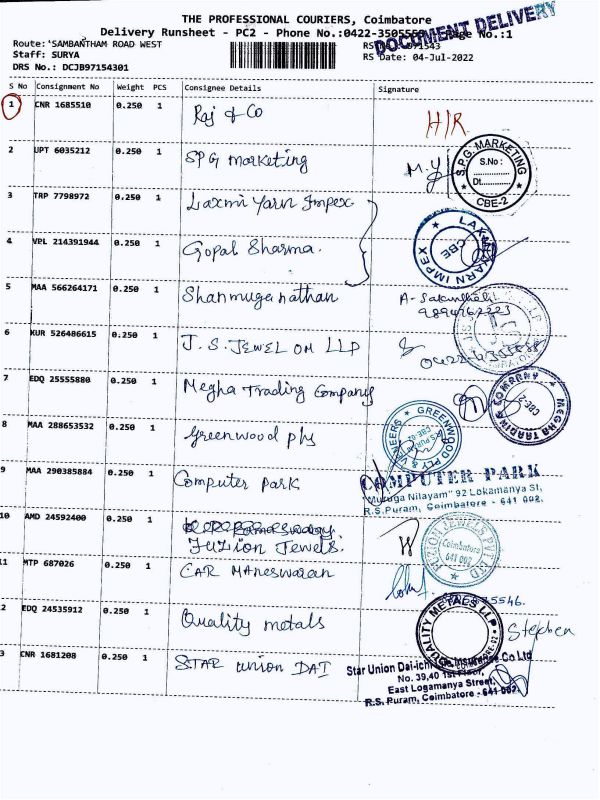 THE PROFESSIONAL COURIERS, Coimbatore
Delivery Runsheet - PC2 - Phone No.:0422-350555 Page No.:1
DOCUMENT DELIVERY
Route: SAMBANTHAM ROAD WEST
Staff: SURYA
DRS No.: DCJB97154301
RS Date: 04-Jul-2022
S No Consignment No Weight PCS Consignee Details Signature
1 CNR 1685510 0.250 1 Raj & Co H/R
2 UPT 6035212 0.250 1 SPG marketing M.Y
S.P.G. MARKETING
S.No:
Dt.
CBE-2
3 TRP 7798972 0.250 1 Laxmi Yarn Impex
4 VPL 214391944 0.250 1 Gopal Sharma.
LAXMI YARN IMPEX
CBE
5 MAA 566264171 0.250 1 Shanmuganathan
6 KUR 526486615 0.250 1 J.S. JEWEL OM LLP
7 EDQ 25555880 0.250 1 Megha Trading Company
MEGHA TRADING COMPANY
CBE-2
8 MAA 288653532 0.250 1 Greenwood ply
GREENWOOD PLY & VENEERS
9 MAA 290385884 0.250 1 Computer Park
COMPUTER PARK
"Muruga Nilayam" 92 Lokamanya St,
R.S.Puram, Coimbatore - 641 002.
10 AMD 24592400 0.250 1
Fuzion Jewels.
Coimbatore
641 002
11 MTP 687026 0.250 1 CAR Maneswaran
2 EDQ 24535912 0.250 1 Quality metals
QUALITY METALS LLP
Stephen
3 CNR 1681208 0.250 1 STAR union DAI
Star Union Dai-ichi Life Insurance Co Ltd
No. 39,40 1st Floor,
East Logamanya Street,
R.S. Puram, Coimbatore - 641 002.